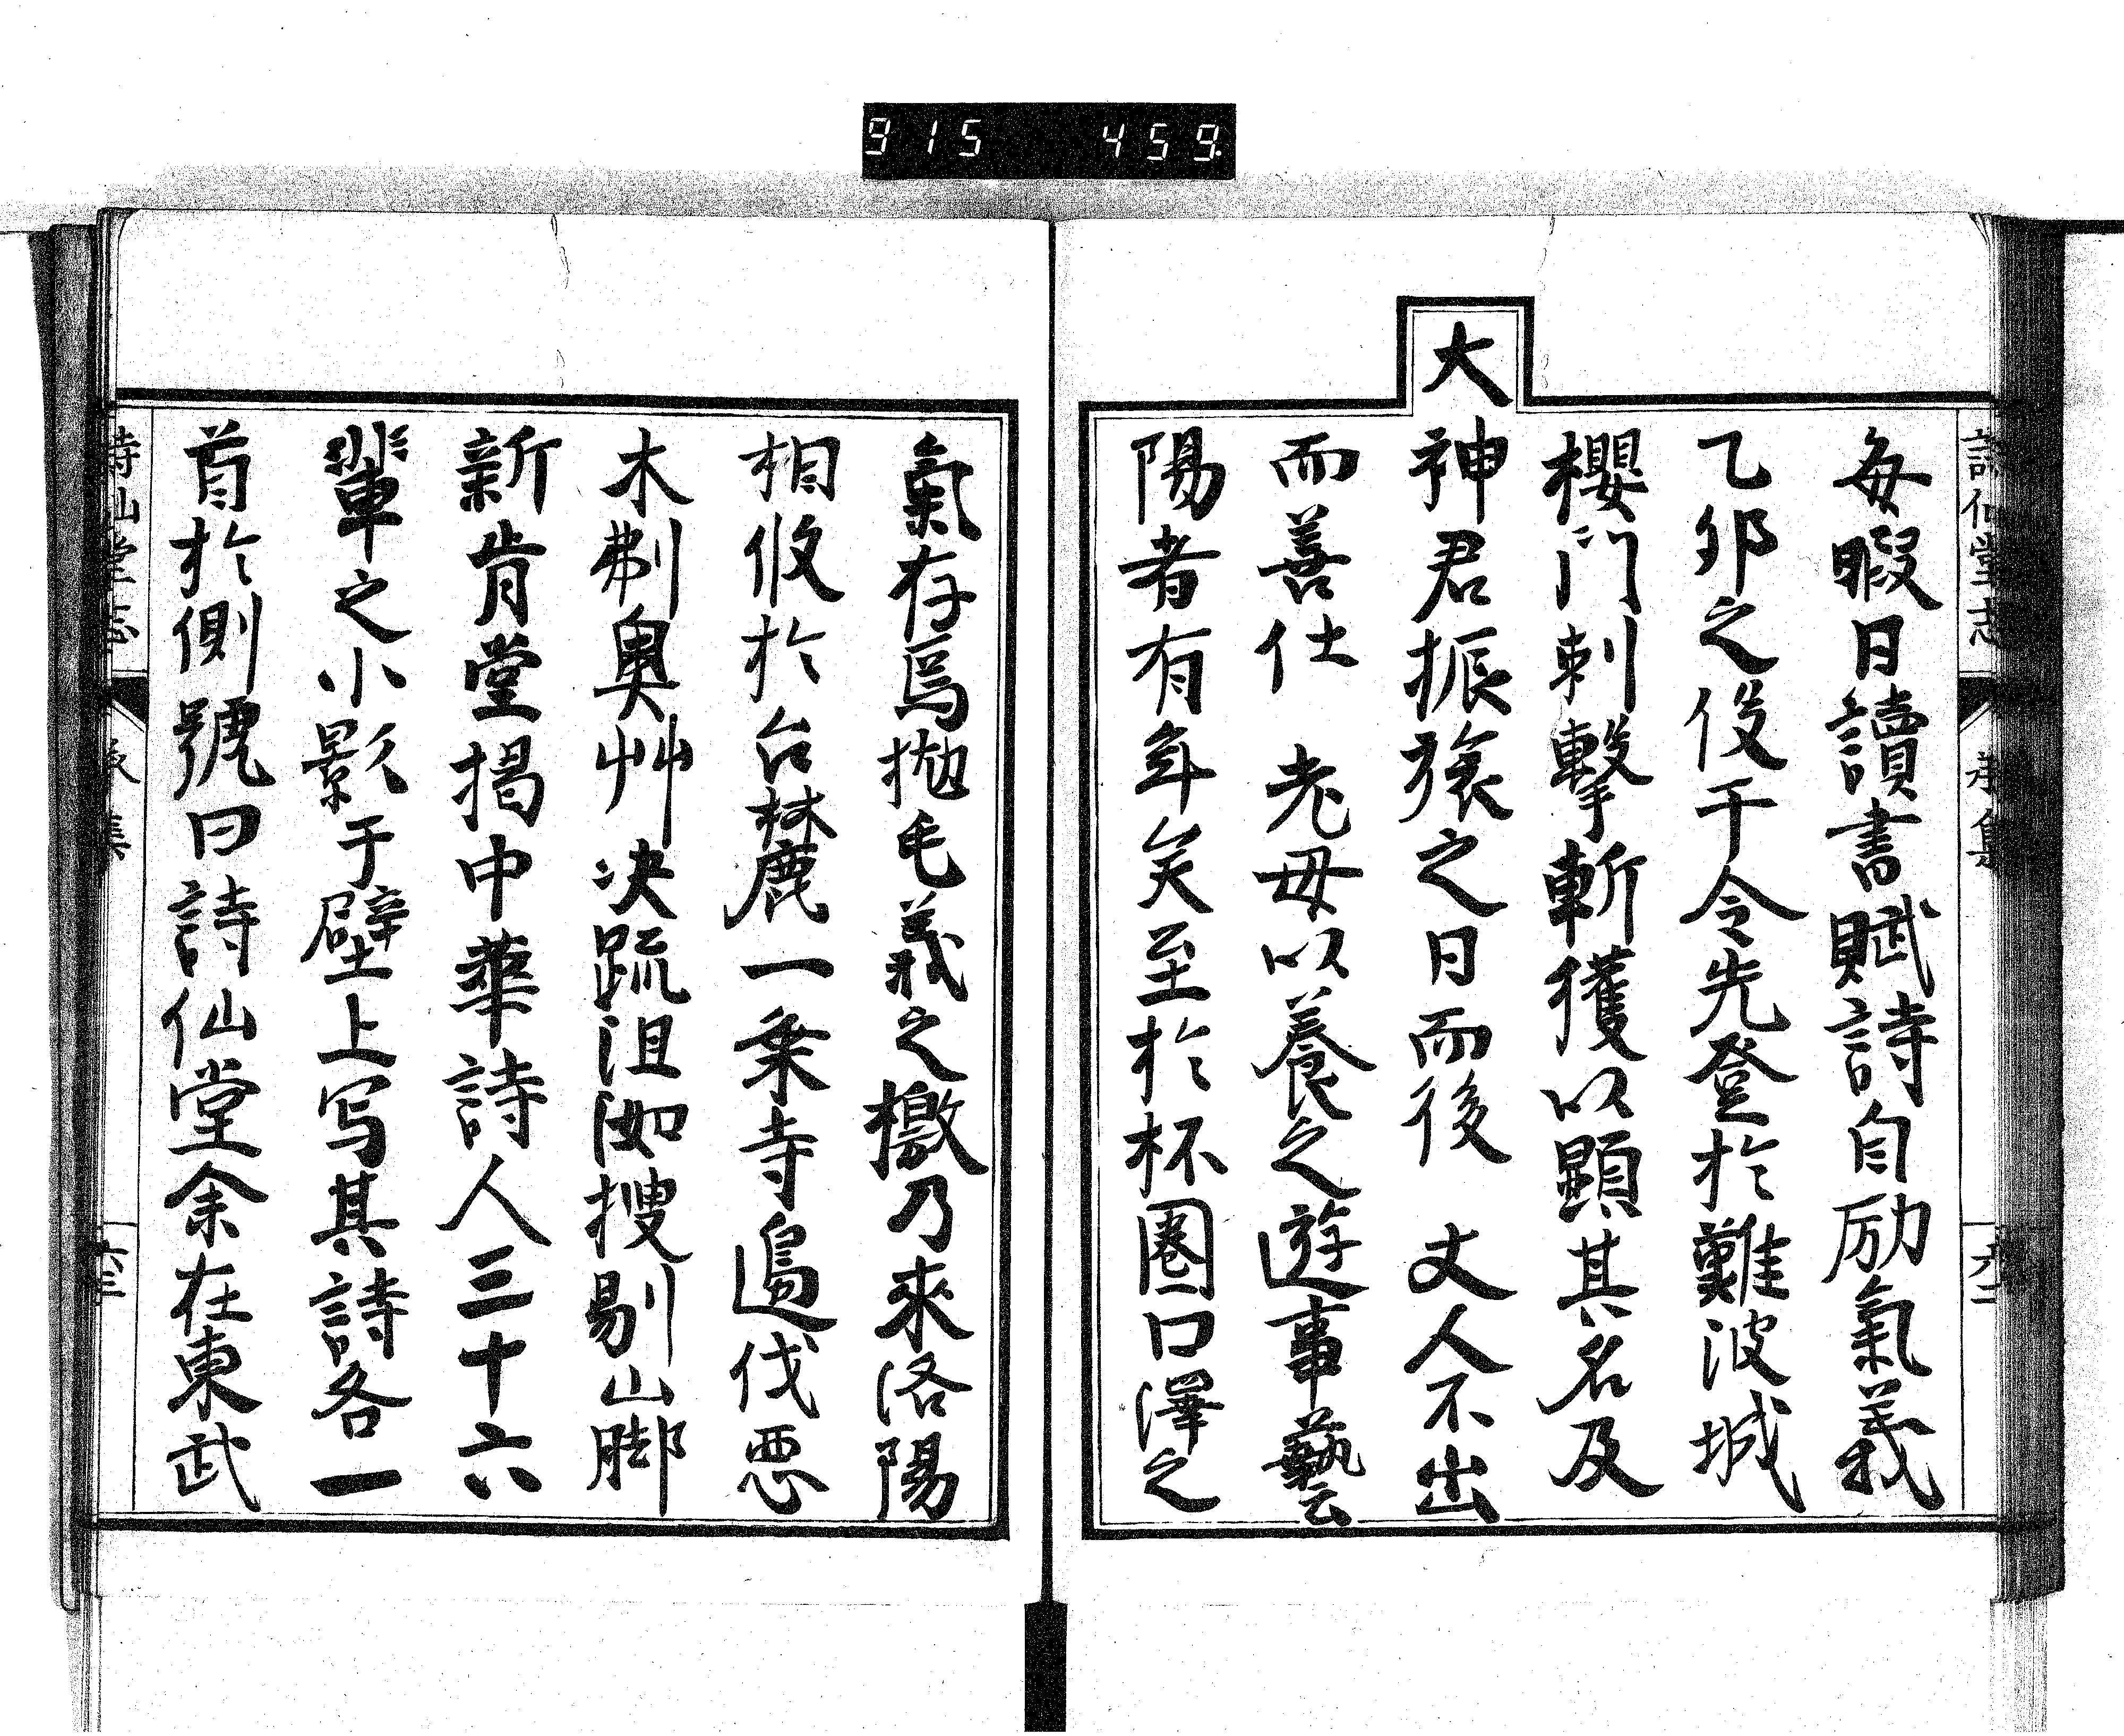 915 459
每暇日讀書賦詩自励氣義
乙卯之役干令先登於難波城
櫻門刺擊斬獲以顯其名及
大神君振旅之日而後 丈人不出
而善仕 老母以養之遊事藝
陽者有年矣至於杯圏口澤之
氣存焉拋毛義之檄乃來洛陽
相攸於台林麓一乗寺邊伐惡
木刜奧艸决疏沮洳搜剔山脚
新肯堂揭中華詩人三十六
輩之小影于壁上写其詩各一
首於側號曰詩仙堂余在東武
詩仙堂志